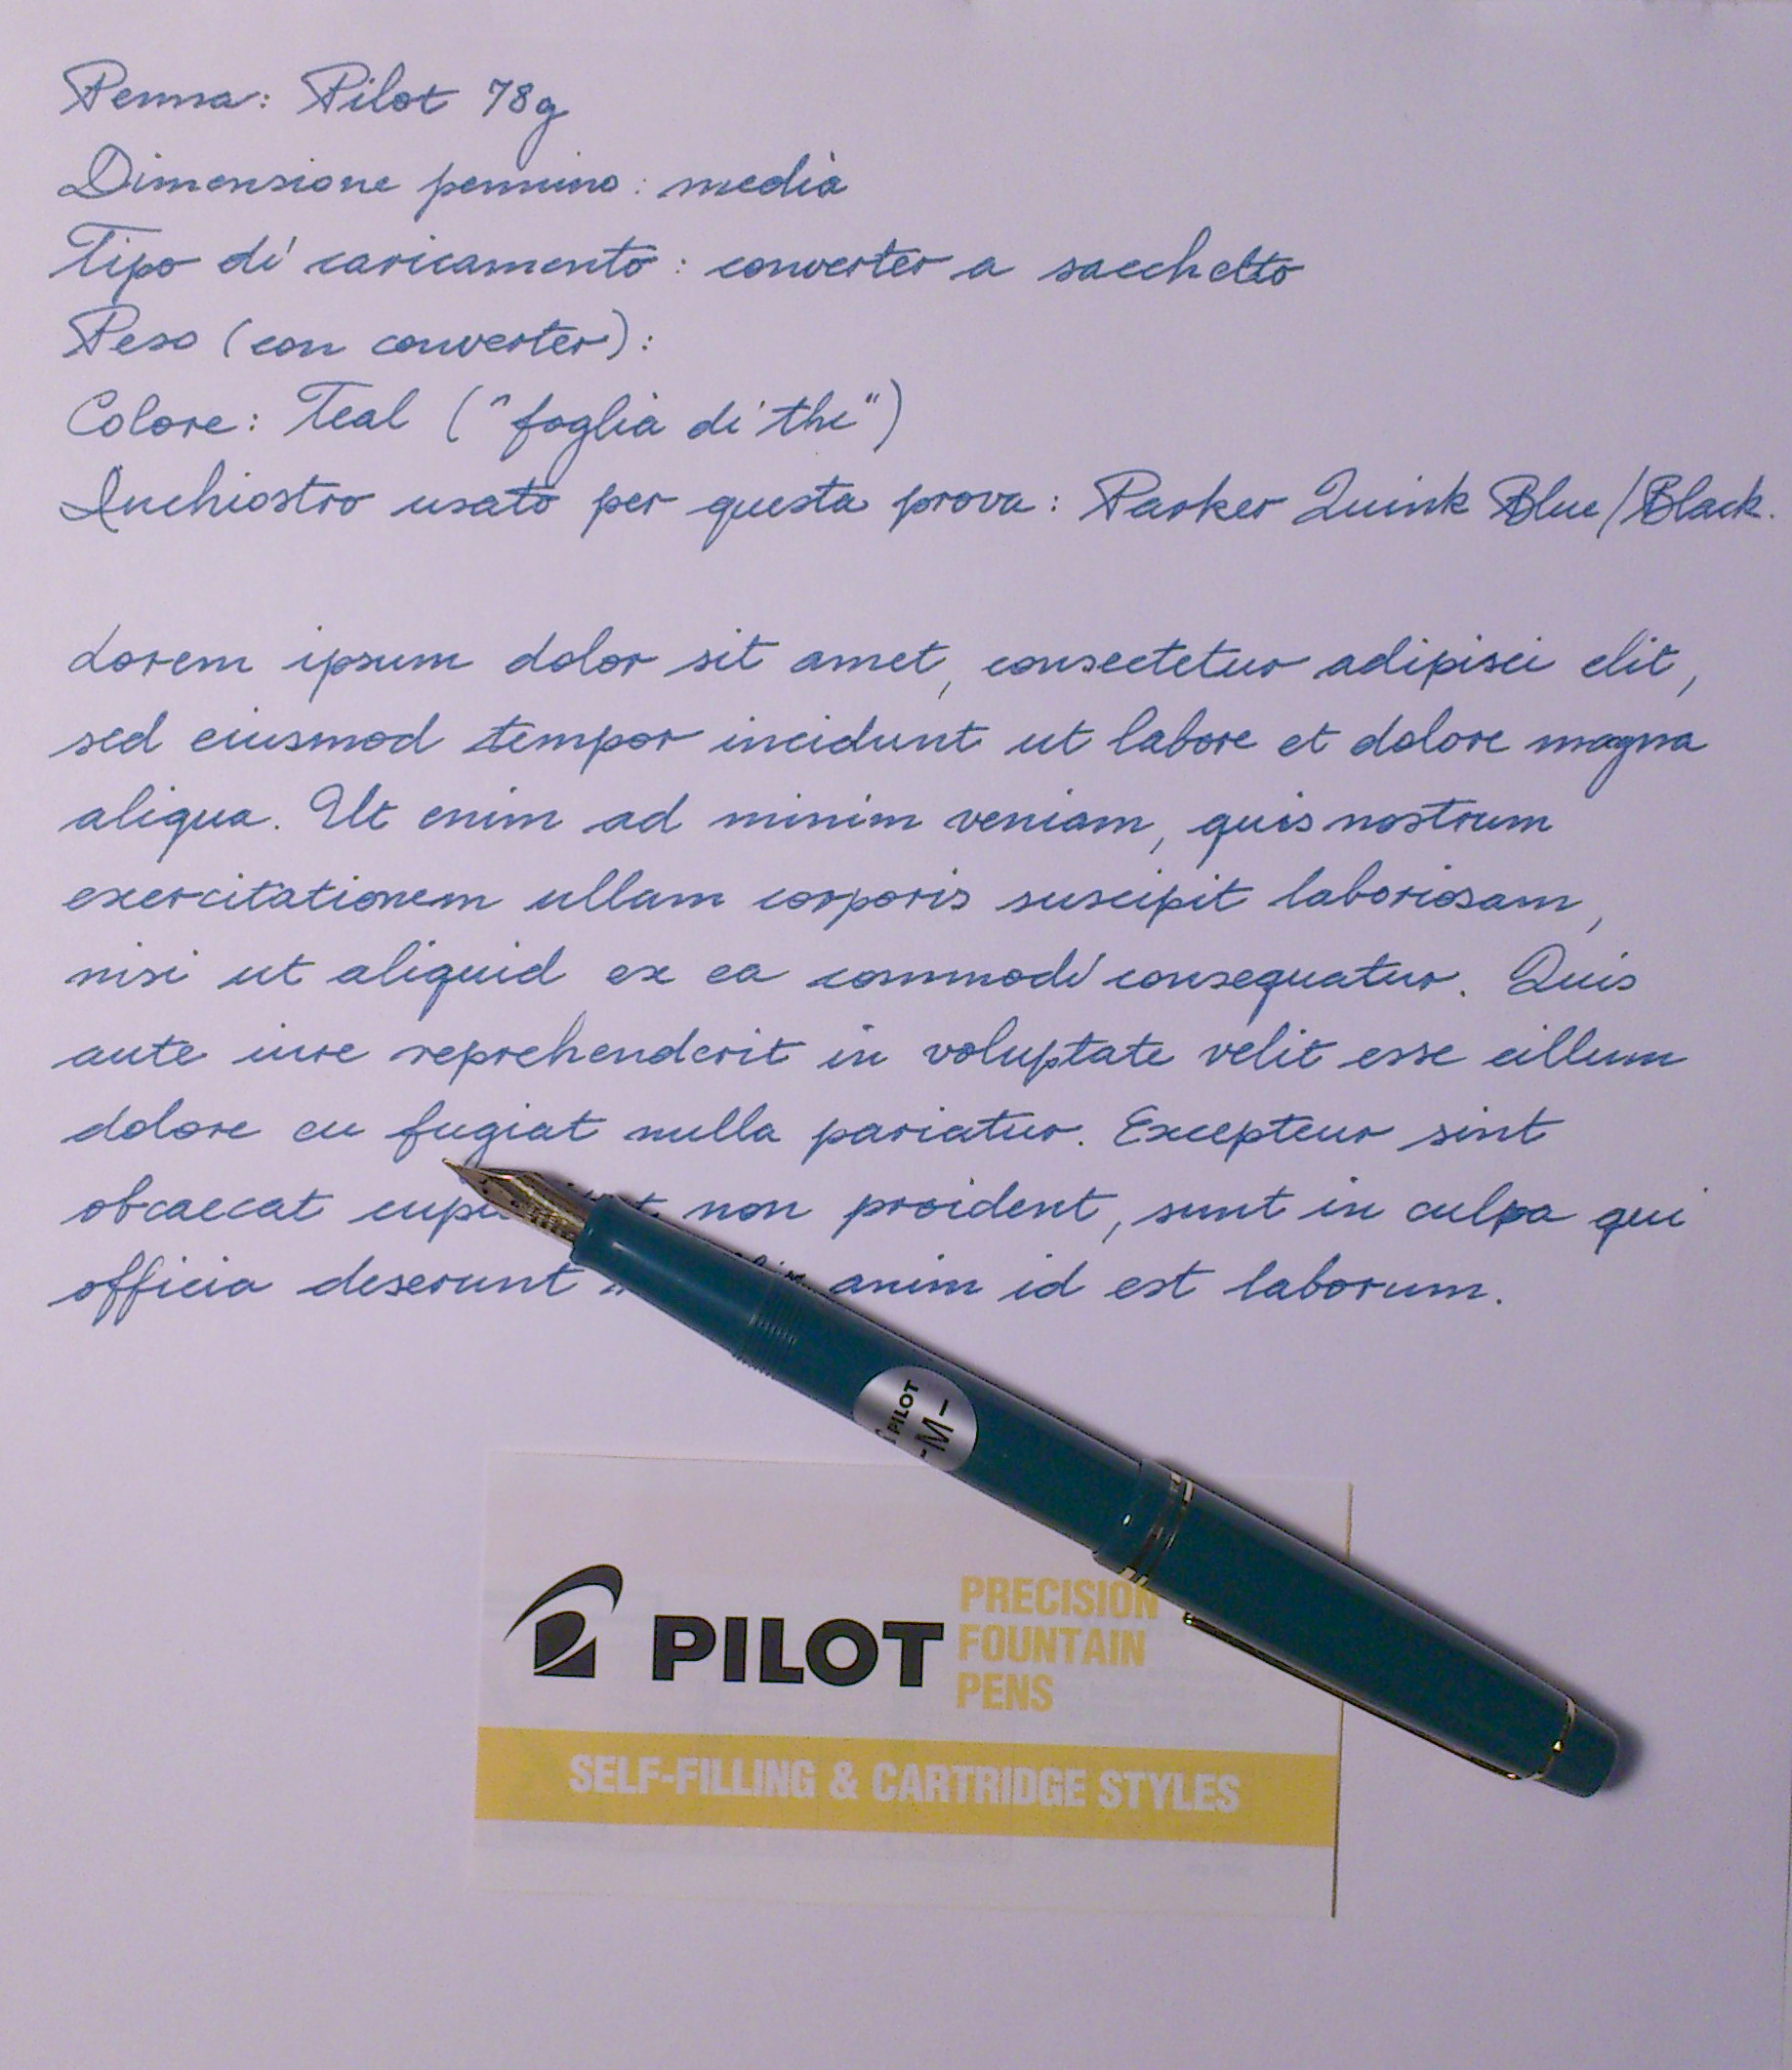 Penna: Pilot 78g
Dimensione pennino: media
Tipo di caricamento: converter a sacchetto
Peso (con converter):
Colore: Teal ("foglia di the")
Inchiostro usato per questa prova: Parker Quink Blue/Black.
Lorem ipsum dolor sit amet, consectetur adipisci elit,
sed eiusmod tempor incidunt ut labore et dolore magna
aliqua. Ut enim ad minim veniam, quis nostrum
exercitationem ullam corporis suscipit laboriosam,
nisi ut aliquid ex ea commodi consequatur. Quis
aute iure reprehenderit in voluptate velit esse cillum
dolore eu fugiat nulla pariatur. Excepteur sint
obcaecat non proident, sunt in culpa qui
officia deserunt anim id est laborum.
PILOT
-M-
PILOT
PRECISION
FOUNTAIN
PENS
SELF-FILLING & CARTRIDGE STYLES